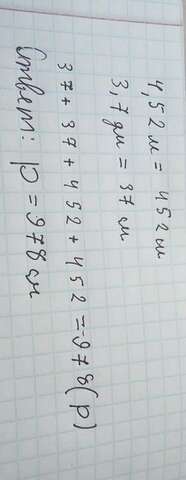 4,52 м = 452 см
3,7 дм = 37 см
37 + 37 + 452 + 452 = 978 (р)
Ответ: р = 978 см